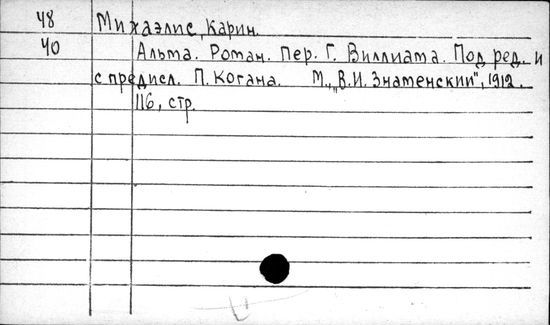 48 Михаэлис, Карин.
40 Альма. Роман. Пер. Г. Виллиама. Под ред. и
с предисл. П. Когана. М., "В.И. Знаменский", 1912.
116, стр.